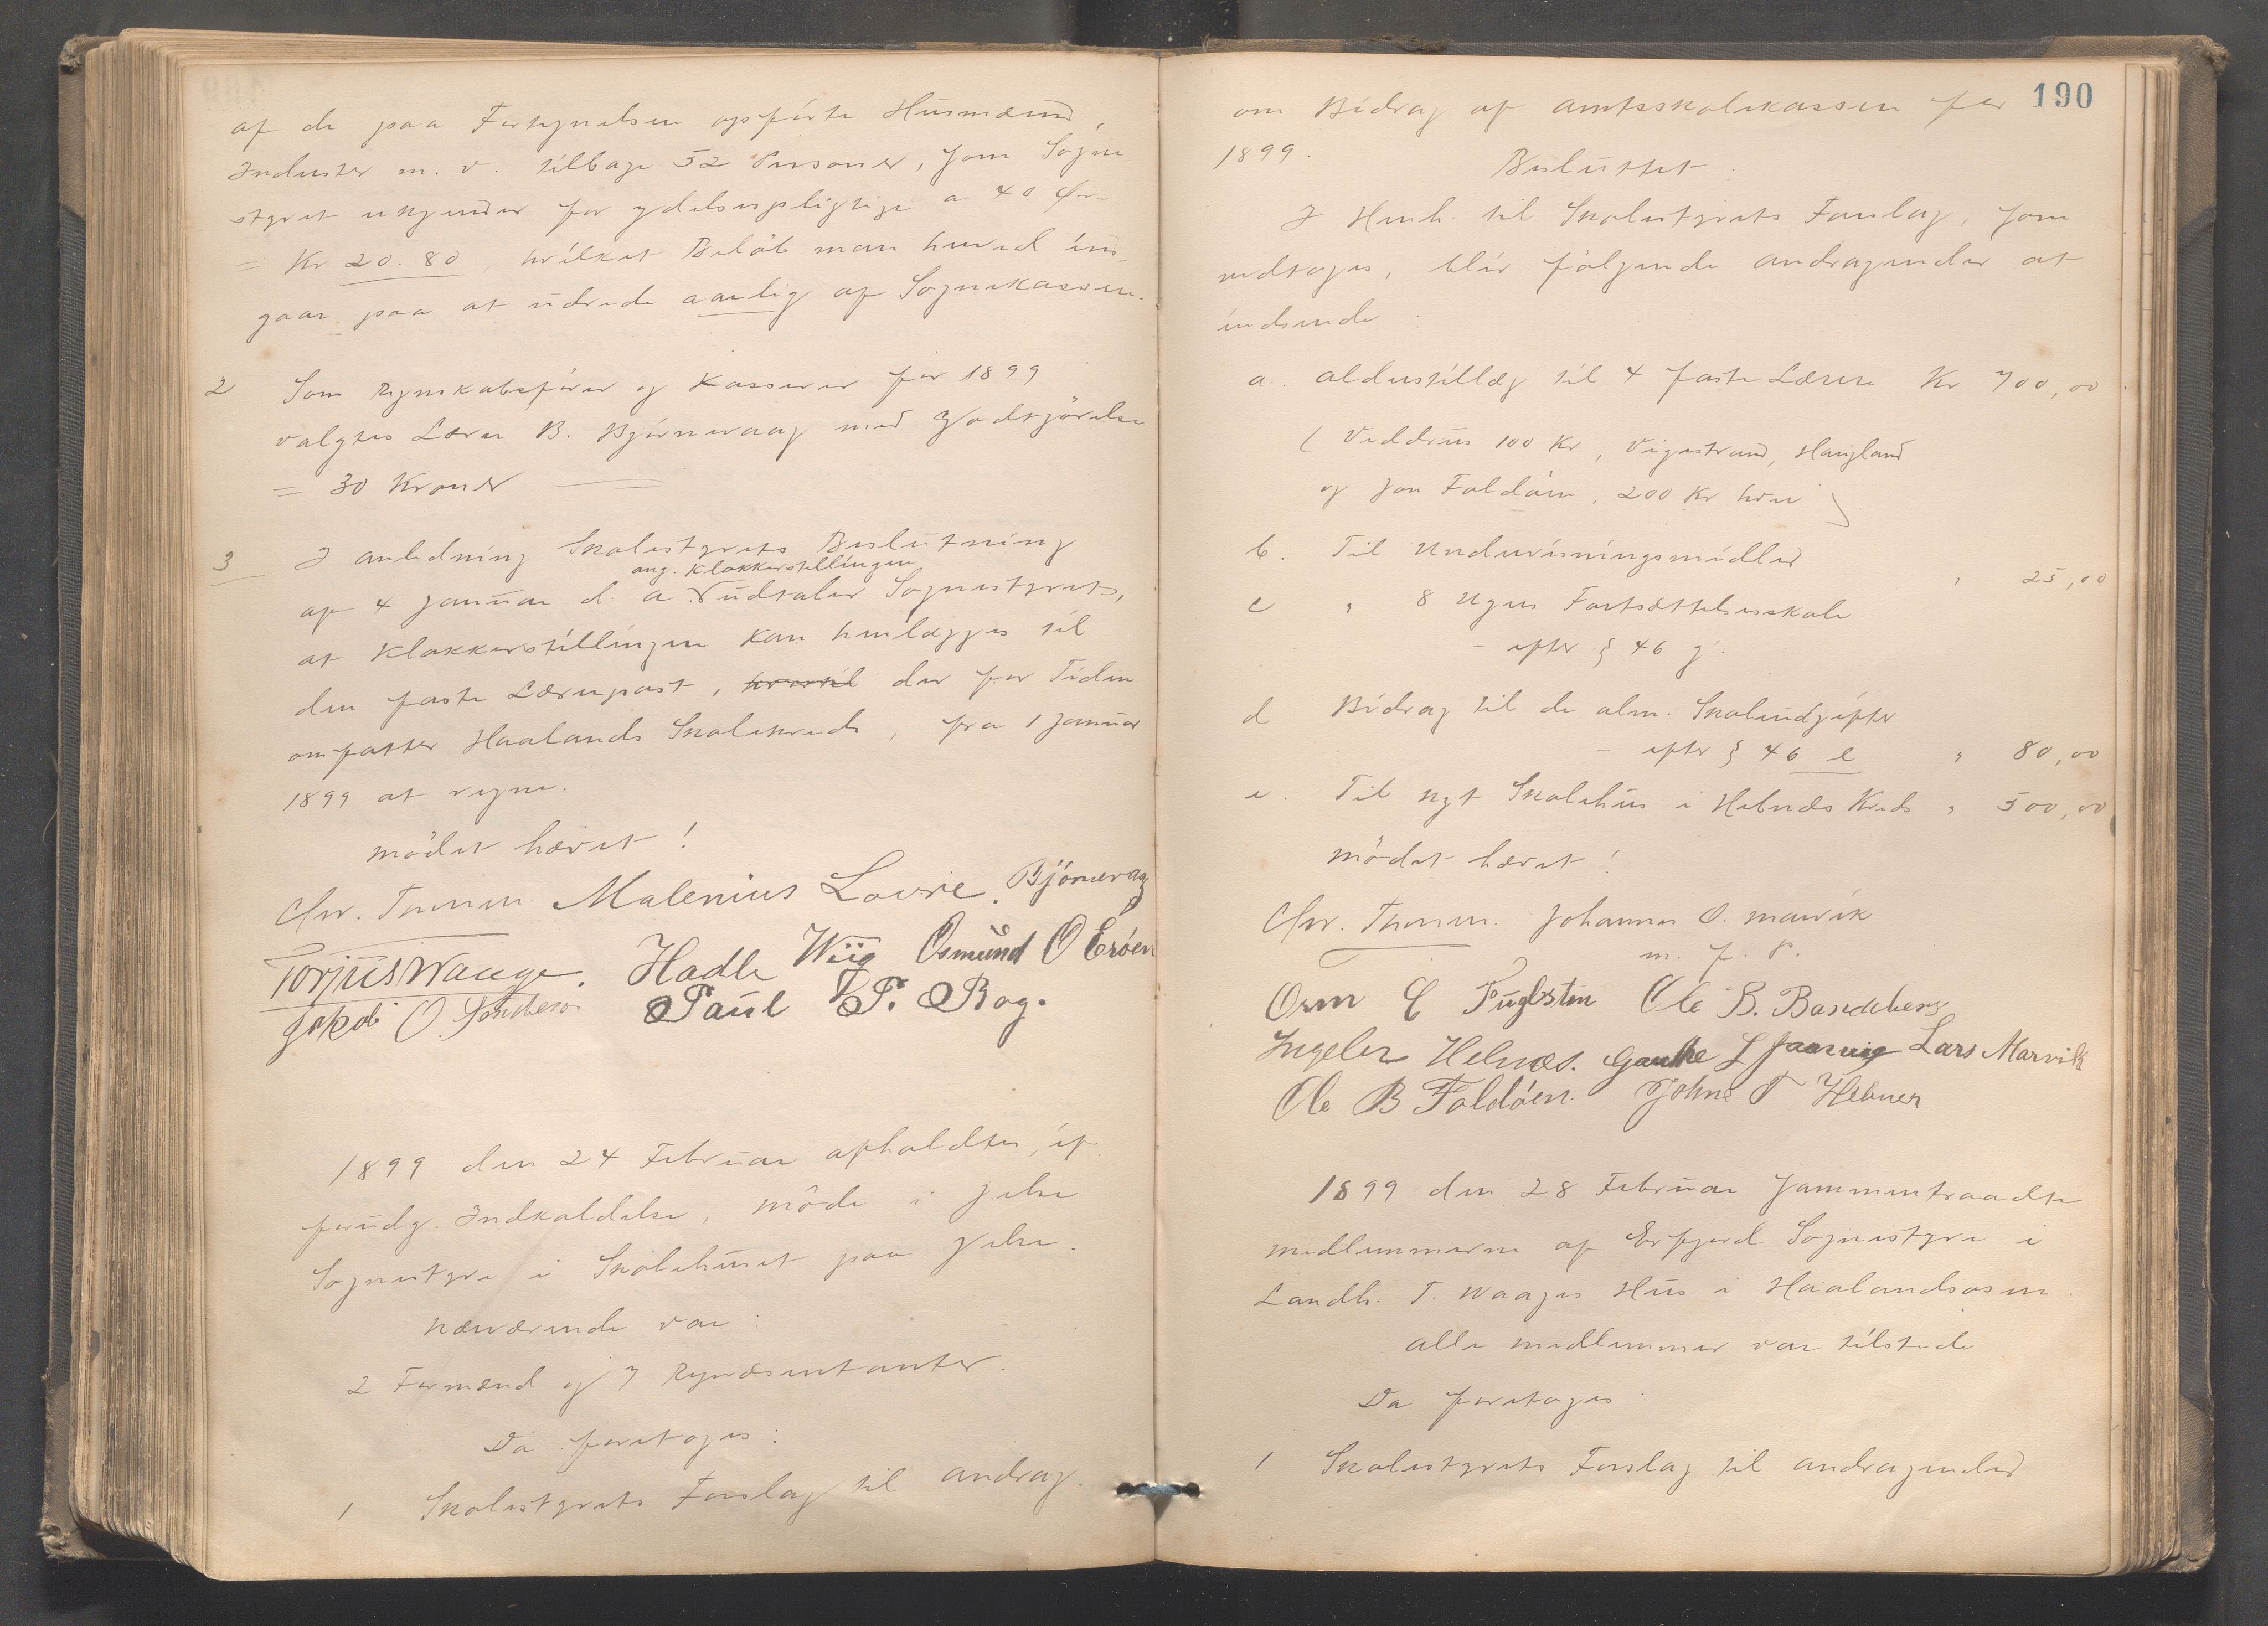 af de paa Fortegnelsen opförte Husmænd,
Inderster m. v. tilbage 52 Personer, som Sogne-
styret erkjender for ydelsespligtige a 40 Øre
= Kr 20.80, hvilket Belöb man herved ind-
gaar paa at udrede aarlig af Sognekassen.
2 Som Regnskabsförer og Kasserer for 1899
valgtes Lærer B. Bjørnevaag med Godtgjörelse
= 30 Kroner
3 I Anledning Skolestyrets Beslutning
ang. Klokkerstillingen
af 4 Januar d. A. udtaler Sognestyret,
at Klokkerstillingen kan henlægges til
den faste Lærerpost, der for Tiden
omfatter Haalands Skolekreds, fra 1 Januar
1899 at regne.
Mödet hævet!
Chr. Malenius Lovre. Bjönevaag
Torjus Waage. Hadle Wiig Osmund O Erøen
Jakob O. Paul P. Rog.
1899 den 24 Februar afholdtes, if.
forudg. Indkaldelse, Möde i Jelse
Sognestyre i Skolehuset paa Jelse.
Nærværende var:
2 Formænd og 7 Repræsentanter.
Da foretoges:
1 Skolestyrets Forslag til Andrag.
190
om Bidrag af Amtsskolekassen for
1899.
Besluttet:
I Henh. til Skolestyrets Forslag, som
vedtoges, blir følgende Andragender at
indsende:
a. Alderstillæg til 4 faste Lærere Kr 700,00
( 100 Kr, Vigestrand, Haugland
og Jon Foldöen, 200 Kr hver)
b. Til Undervisningsmidler " 25,00
c " 8 Ugers Fortsættelsesskole
- efter § 46 g.
d Bidrag til de alm. Skoleudgifter
- efter § 46 e " 80,00
e. Til nyt Skolehus i Hebnes Kreds " 500,00
Mödet hævet!
Chr. Johannes O. Marvik
m. f. P.
Orm E Fuglesten Ole B.
Ingeler Hebnes. Gauthe L Lars Marvik
Ole B Foldöen. John T Hebnes
1899 den 28 Februar sammentraadte
Medlemmerne af Erfjord Sognestyre i
Landh. T. Waages Hus i Haalandsosen.
Alle Medlemmer var tilstede
Da foretoges:
1 Skolestyrets Forslag til Andragender